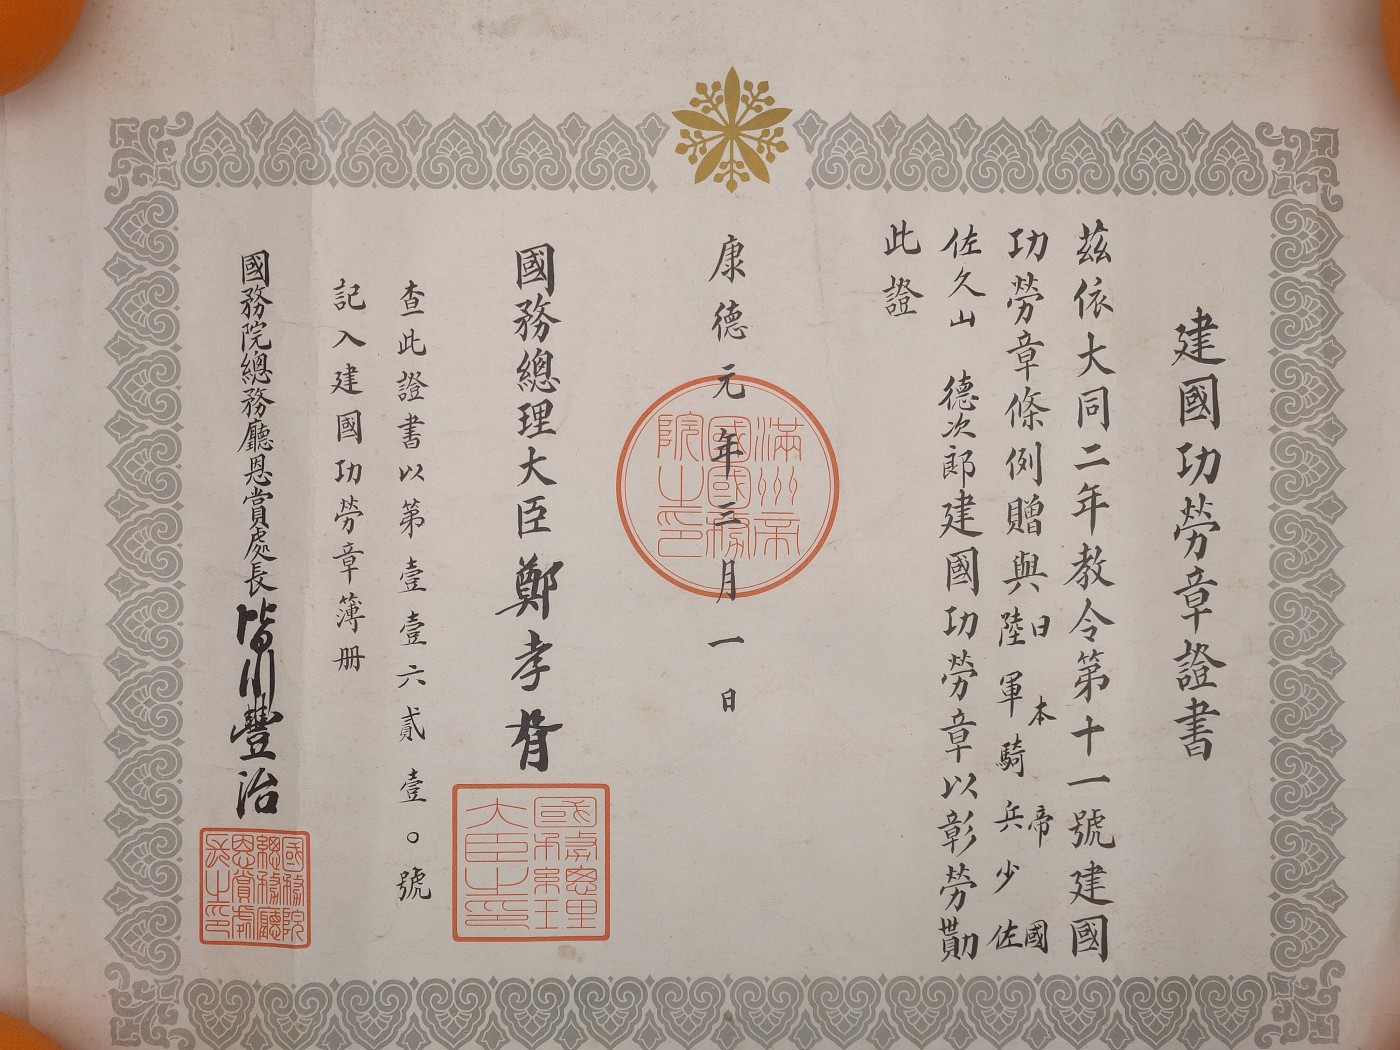 建國功勞章證書
茲依大同二年教令第十一號建國
功勞章條例贈與日本帝國陸軍騎兵少佐
佐久山德次郎建國功勞章以彰勞勩
此證
康德元年三月一日
滿州帝
國國務
院之印
國務總理大臣鄭孝胥
國務總理
大臣之印
查此證書以第壹壹六貳壹〇號
記入建國功勞章簿册
國務院總務廳恩賞處長皆川豐治
國務院
總務廳
恩賞處
長之印